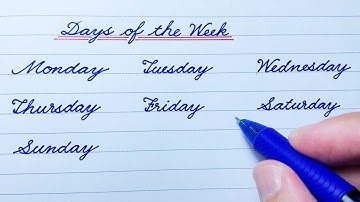 Days of the Week
Monday Tuesday Wednesday
Thursday Friday Saturday
Sunday